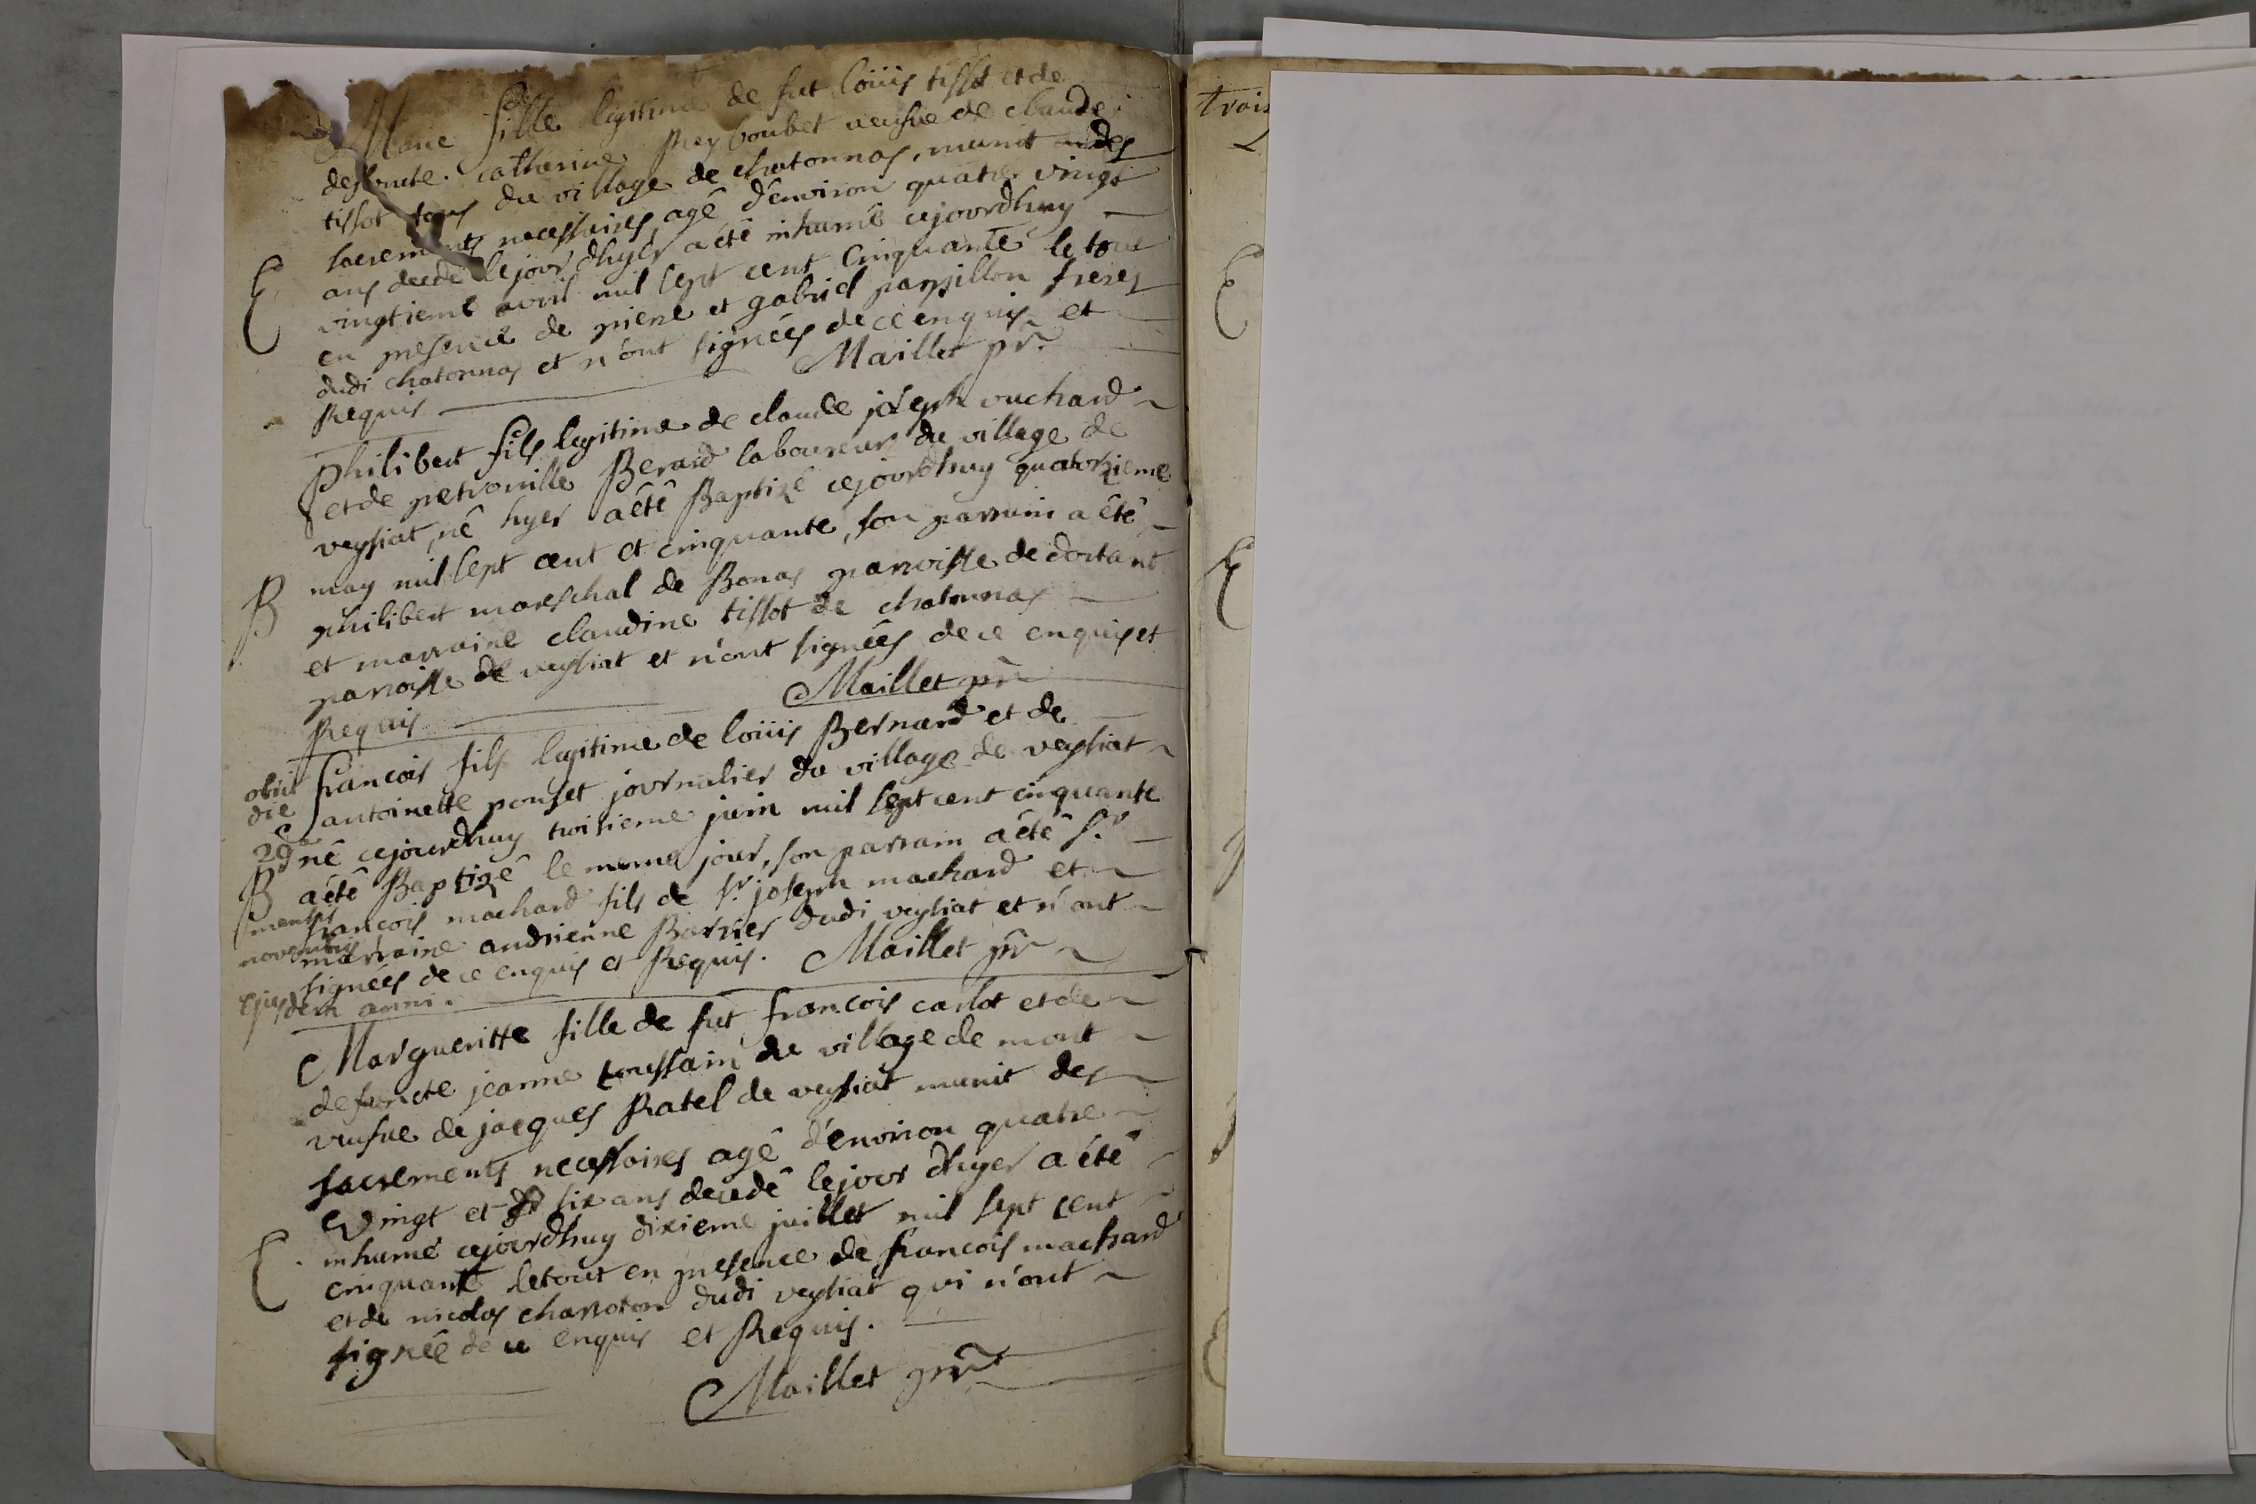 Marie fille legitime de fut loüis tissot et de
defuncte catherine Rey boubet veusve de claude
tissot tous du village de chatonnas, munit des
sacrements necessaires, agê d'environ quatre vingt
E ans decedê le jour d'hyer a êtê inhumê cejourdhuy
vingtieme avril mil sept cent cinquante le tout
en presence de pierre et gabriel papillon freres
dudi chatonnas et n'ont signêes de ce enquis et
Requis Maillet ptr
philibert fils legitime de claude joseph vuchard
et de petronille Berard laboureur du village de
veysiat, nê hyer a êtê Baptizê cejourdhuy quatorzieme
may mil sept cent et cinquante, son parrain a êtê
B philibert mareschal de Bonas parroisse de dortant
et marraine claudine tissot de chatonnas
parroisse de veysiat et n'ont signêes de ce enquis et
Requis Maillet ptr
francois fils legitime de loüis Bernard et de
obiit antoinette ponset journalier du village de veysiat
die
29a nê cejourdhuy troisieme juin mil sept cent cinquante
B a êtê Baptizê le meme jour, son parrain a êtê sr
mensis francois machard fils de sr joseph machard et
novembris marraine andrienne Barrier dudi veysiat et n'ont
signêes de ce enquis et Requis. Maillet ptr
ejusdem anni.
Margueritte fille de fut francois carlot et de
defuncte jeanne toussain du village de mont
veusve de jacques Ratel de veysiat munit des
sacrements necessaires agê d'environ quatre
vingt et six ans decedê le jour d'hyer a êtê
E inhumê cejourdhuy dixieme juillet mil sept cent
cinquante le tout en presence de francois machard
et de nicolas charroton dudi veysiat qui n'ont
signêe de ce enquis et Requis.
Maillet ptr
trois
E
E